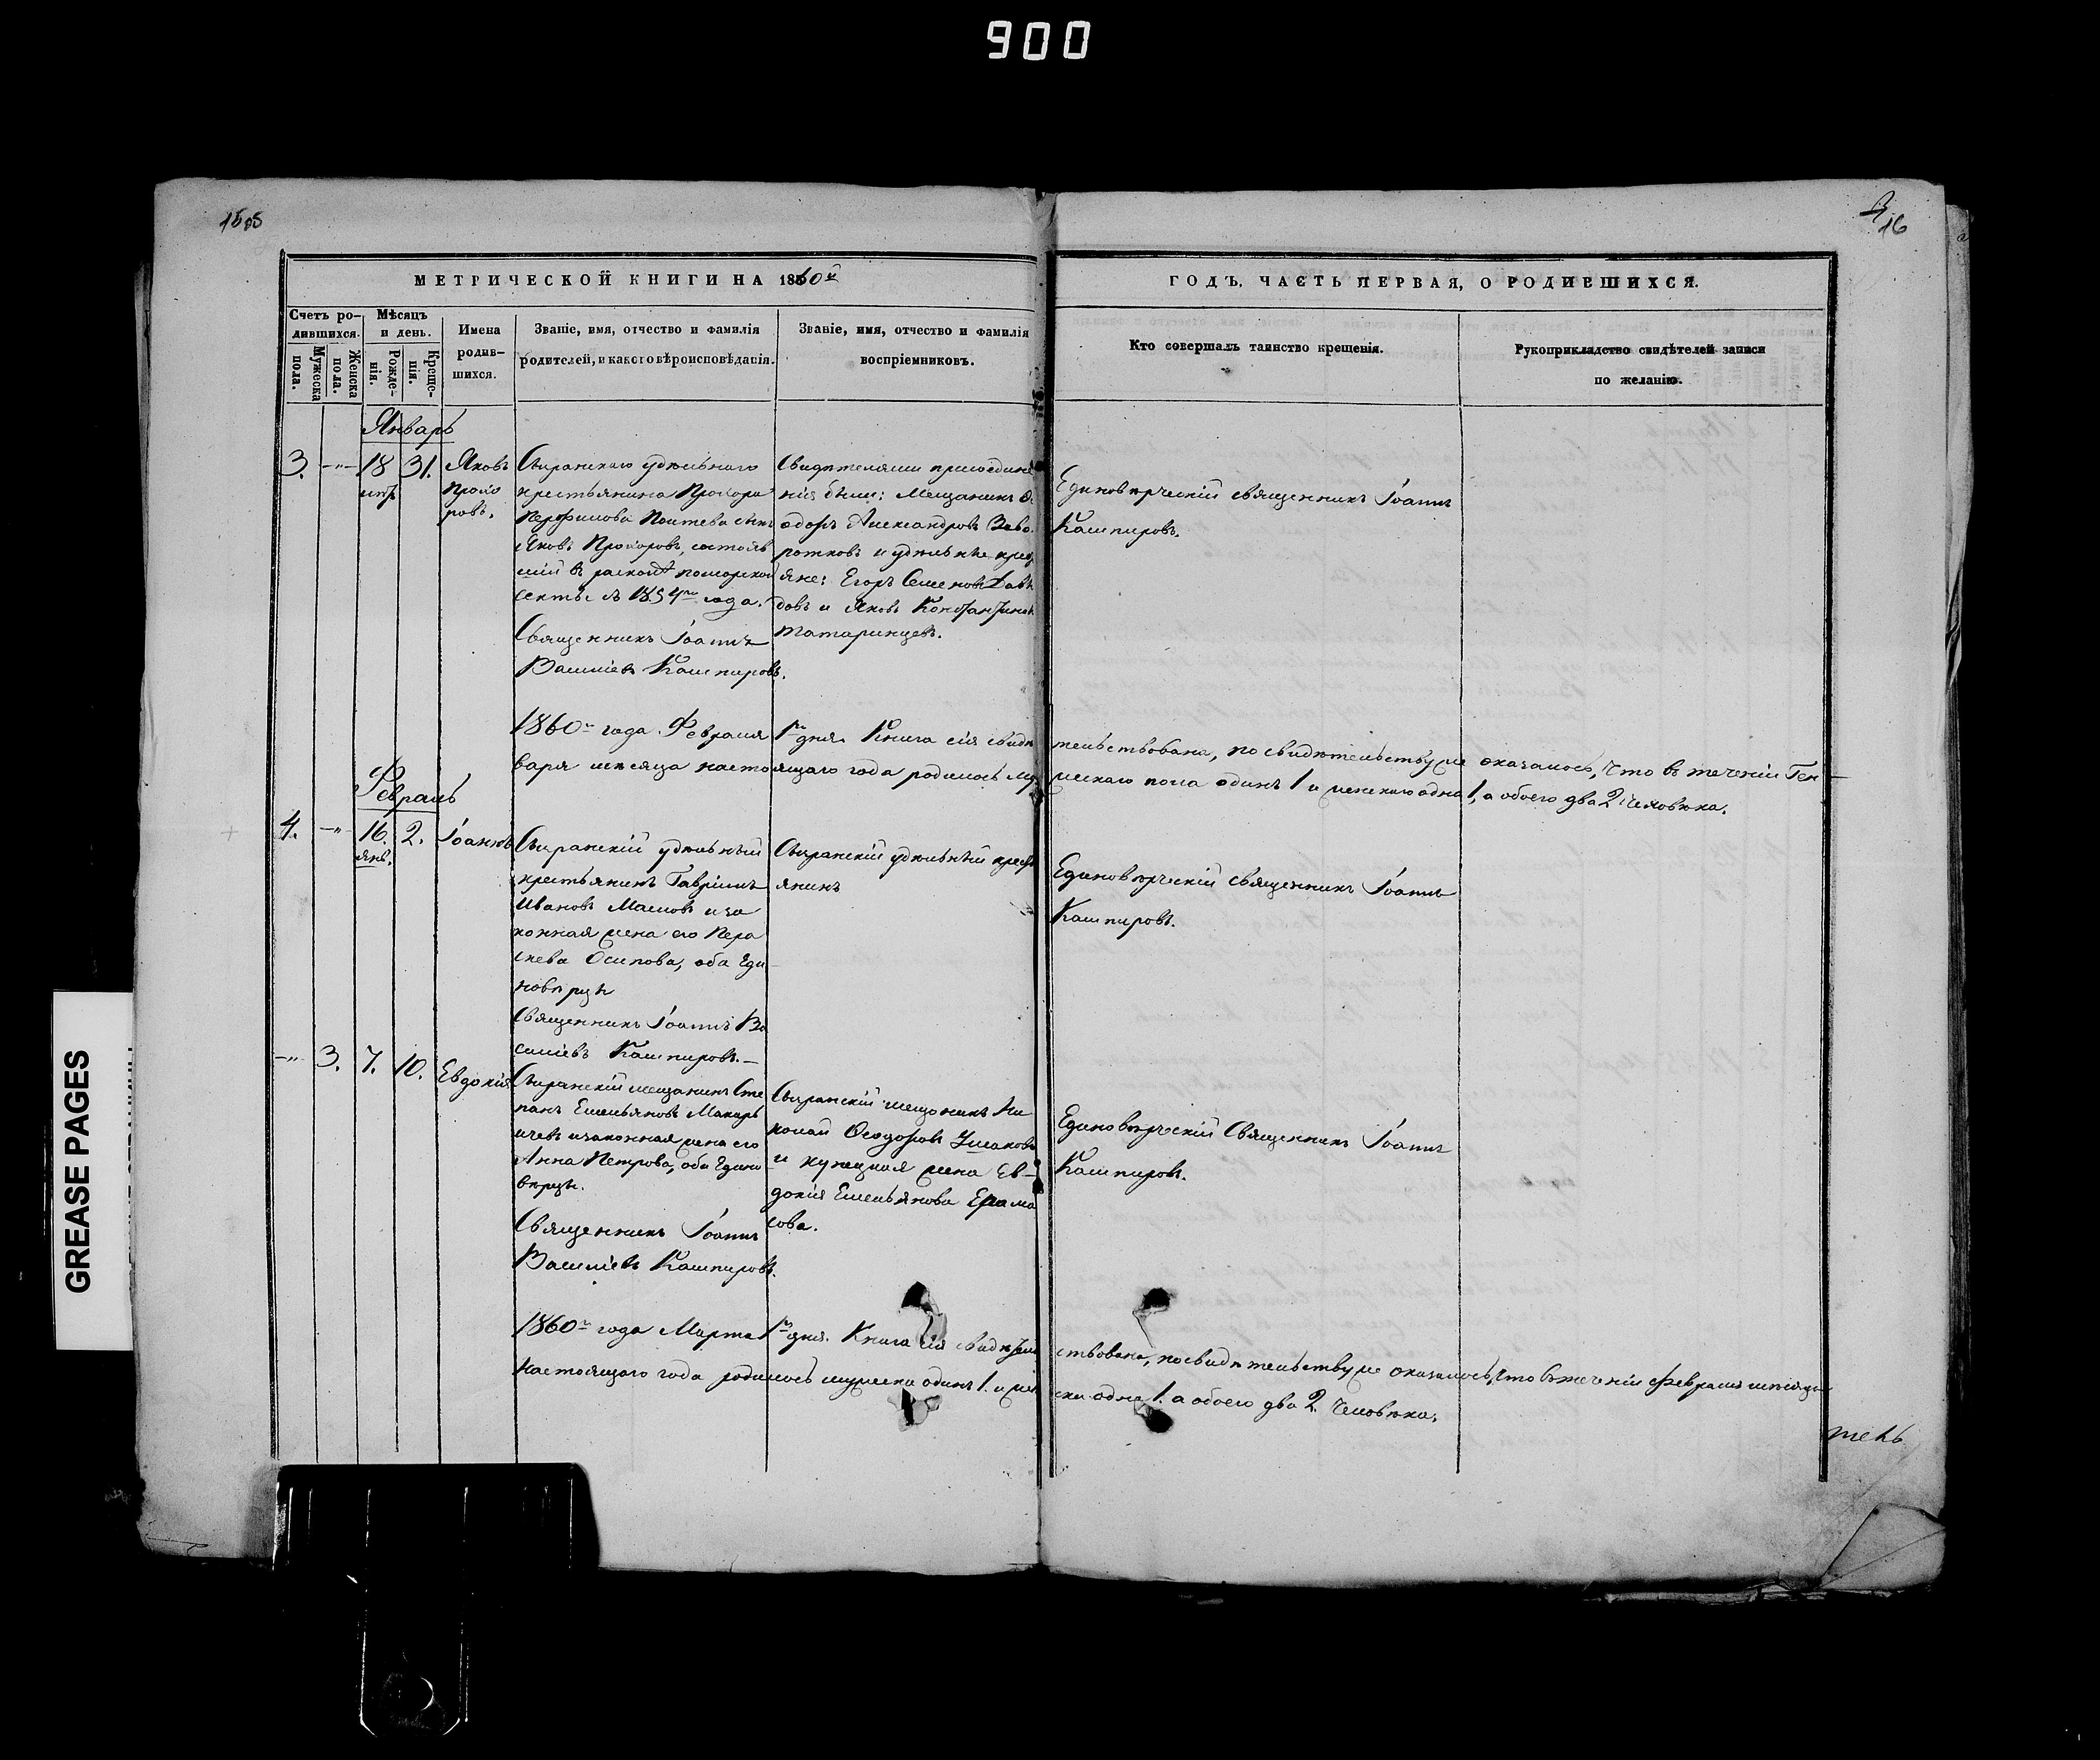 900
16
МЕТРИЧЕСКОЙ КНИГИ НА 1860й
ГОДЪ, ЧАСТЬ ПЕРВАЯ, О РОДИВШИХСЯ.
Счетъ ро-
дившихся.
Мужеска
пола.
Женска
пола.
Мѣсяцъ
и день.
Рожде-
нія.
Креще-
нія.
Имена
родив-
шихся.
Званіе, имя, отчество и фамилія
родителей, и какого вѣроисповѣданія.
Званіе, имя, отчество и фамилія
воспріемниковъ.
Кто совершалъ таинство крещенія.
Рукоприкладство свидѣтелей записи
по желанію.
Январь
3. -"- 18 31.
Яковъ
Прохо
ровъ.
Сызранскаго удѣльнаго
крестьянина Прохора
сынъ
Яковъ Прохоровъ, состояв
шій въ расколѣ поморской
сектѣ съ 1854го года.
Священникъ Іоаннъ
Васильевъ Кашпировъ.
Свидѣтелями присоедине
нія были: Мещанинъ Ѳе
одоръ Александровъ Заво
ротковъ и удѣльные крест
яне: Егоръ Семеновъ Давы
довъ и Яковъ Константиновъ
Татаринцевъ.
Единовѣрческій священникъ Іоаннъ
Кашпировъ.
1860го года Февраля 1го дня. Книга сія свидѣтельствована, по свидѣтельству же оказалось, что въ теченіи Ген-
варя мѣсяца настоящаго года родилось мужескаго пола одинъ 1 и женскаго одна 1, а обоего два 2 человѣка.
Февраль
4. -"- 16. 2. Іоаннъ
янв.
Сызранскій удѣльный
крестьянинъ Гавріилъ
Ивановъ Масловъ и за
конная жена его Пера
скева Осипова, оба Еди
новѣрцы
Священникъ Іоаннъ Ва
сильевъ Кашпировъ.-
Сызранскій удѣльный крест
янинъ
Единовѣрческій священникъ Іоаннъ
Кашпировъ.
-"- 3. 7. 10. Евдокія
Сызранскій мещанинъ Сте
панъ Емельяновъ Макарь
ичевъ и законная жена его
Анна Петрова, оба Едино
вѣрцы.
Священникъ Іоаннъ
Васильевъ Кашпировъ.
Сызранскій мещанинъ Ни
колай Ѳеодоровъ Ушаковъ
и купецкая жена Ев-
докія Емельянова Ерама
сова.
Единовѣрческій Священникъ Іоаннъ
Кашпировъ.
1860го года Марта 1го дня. Книга сія свидѣтельствована, по свидѣтельству же оказалось, что въ теченіи Февраля мѣсяца
настоящаго года родилось мужеска одинъ 1. и женска одна 1. а обоего два 2. человѣка.
GREASE PAGES